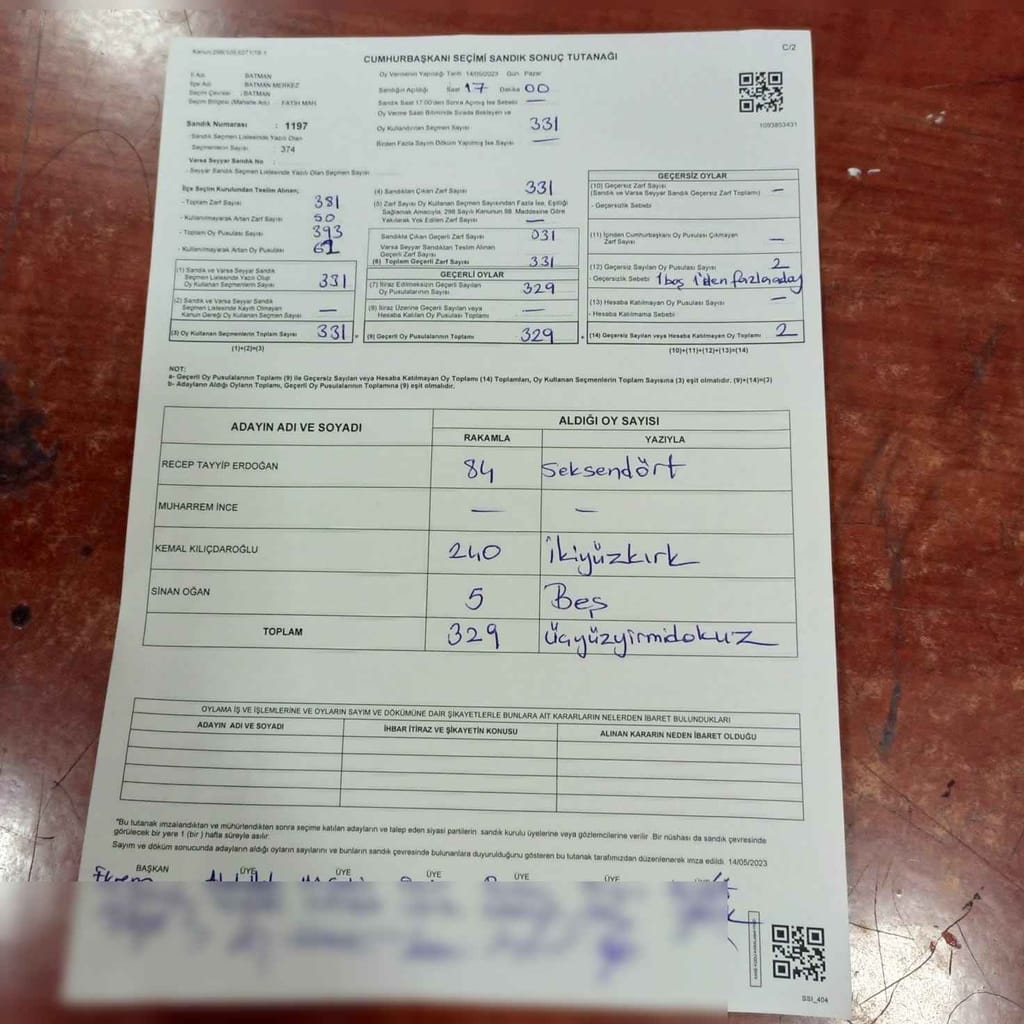 C/2
CUMHURBAŞKANI SEÇİMİ SANDIK SONUÇ TUTANAĞI
İl Adı : BATMAN
İlçe Adı : BATMAN MERKEZ
Seçim Çevresi : BATMAN
Seçim Bölgesi (Mahalle Adı) : FATİH MAH
Sandık Numarası : 1197
Sandık Seçmen Listesinde Yazılı Olan
Seçmenlerin Sayısı : 374
Varsa Seyyar Sandık No :
Seyyar Sandık Seçmen Listesinde Yazılı Olan Seçmen Sayısı :
Oy Vermenin Yapıldığı Tarih 14/05/2023 Gün Pazar
Sandığın Açıldığı Saat 17 Dakika 00
Sandık Saat 17:00'den Sonra Açılmış İse Sebebi —
Oy Verme Saati Bitiminde Sırada Bekleyen ve
Oy Kullandırılan Seçmen Sayısı 331
Birden Fazla Sayım Döküm Yapılmış İse Sayısı —
1093853431
İlçe Seçim Kurulundan Teslim Alınan;
- Toplam Zarf Sayısı 381
- Kullanılmayarak Artan Zarf Sayısı 50
- Toplam Oy Pusulası Sayısı 393
- Kullanılmayarak Artan Oy Pusulası
(1) Sandık ve Varsa Seyyar Sandık
Seçmen Listesinde Yazılı Olup
Oy Kullanan Seçmenlerin Sayısı 331
(2) Sandık ve Varsa Seyyar Sandık
Seçmen Listesinde Kayıtlı Olmayan
Kanun Gereği Oy Kullanan Seçmen Sayısı —
(3) Oy Kullanan Seçmenlerin Toplam Sayısı 331
(1)+(2)=(3)
(4) Sandıktan Çıkan Zarf Sayısı 331
(5) Zarf Sayısı Oy Kullanan Seçmen Sayısından Fazla İse, Eşitliği
Sağlamak Amacıyla, 298 Sayılı Kanunun 98. Maddesine Göre
Yakılarak Yok Edilen Zarf Sayısı —
Sandıkta Çıkan Geçerli Zarf Sayısı 031
Varsa Seyyar Sandıktan Teslim Alınan
Geçerli Zarf Sayısı
(6) Toplam Geçerli Zarf Sayısı 331
GEÇERLİ OYLAR
(7) İtiraz Edilmeksizin Geçerli Sayılan
Oy Pusulalarının Sayısı 329
(8) İtiraz Üzerine Geçerli Sayılan veya
Hesaba Katılan Oy Pusulası Toplamı —
(9) Geçerli Oy Pusulalarının Toplamı 329
GEÇERSİZ OYLAR
(10) Geçersiz Zarf Sayısı
(Sandık ve Varsa Seyyar Sandık Geçersiz Zarf Toplamı) —
- Geçersizlik Sebebi
(11) İçinden Cumhurbaşkanı Oy Pusulası Çıkmayan
Zarf Sayısı —
(12) Geçersiz Sayılan Oy Pusulası Sayısı 2
- Geçersizlik Sebebi 1 boş 1'den fazla aday
(13) Hesaba Katılmayan Oy Pusulası Sayısı —
- Hesaba Katılmama Sebebi
(14) Geçersiz Sayılan veya Hesaba Katılmayan Oy Toplamı 2
(10)+(11)+(12)+(13)=(14)
NOT:
a- Geçerli Oy Pusulalarının Toplamı (9) ile Geçersiz Sayılan veya Hesaba Katılmayan Oy Toplamı (14) Toplamları, Oy Kullanan Seçmenlerin Toplam Sayısına (3) eşit olmalıdır. (9)+(14)=(3)
b- Adayların Aldığı Oyların Toplamı, Geçerli Oy Pusulalarının Toplamına (9) eşit olmalıdır.
ADAYIN ADI VE SOYADI ALDIĞI OY SAYISI
RAKAMLA YAZIYLA
RECEP TAYYİP ERDOĞAN 84 Seksendört
MUHARREM İNCE — —
KEMAL KILIÇDAROĞLU 240 İkiyüzkırk
SİNAN OĞAN 5 Beş
TOPLAM 329 Üçyüzyirmidokuz
OYLAMA İŞ VE İŞLEMLERİNE VE OYLARIN SAYIM VE DÖKÜMÜNE DAİR ŞİKAYETLERLE BUNLARA AİT KARARLARIN NELERDEN İBARET BULUNDUKLARI
ADAYIN ADI VE SOYADI İHBAR İTİRAZ VE ŞİKAYETİN KONUSU ALINAN KARARIN NEDEN İBARET OLDUĞU
"Bu tutanak imzalandıktan ve mühürlendikten sonra seçime katılan adayların ve talep eden siyasi partilerin sandık kurulu üyelerine veya gözlemcilerine verilir. Bir nüshası da sandık çevresinde
görülecek bir yere 1 (bir) hafta süreyle asılır.
Sayım ve döküm sonucunda adayların aldığı oyların sayılarını ve bunların sandık çevresinde bulunanlara duyurulduğunu gösteren bu tutanak tarafımızdan düzenlenerek imza edildi. 14/05/2023
BAŞKAN ÜYE ÜYE ÜYE ÜYE ÜYE
SSI_404